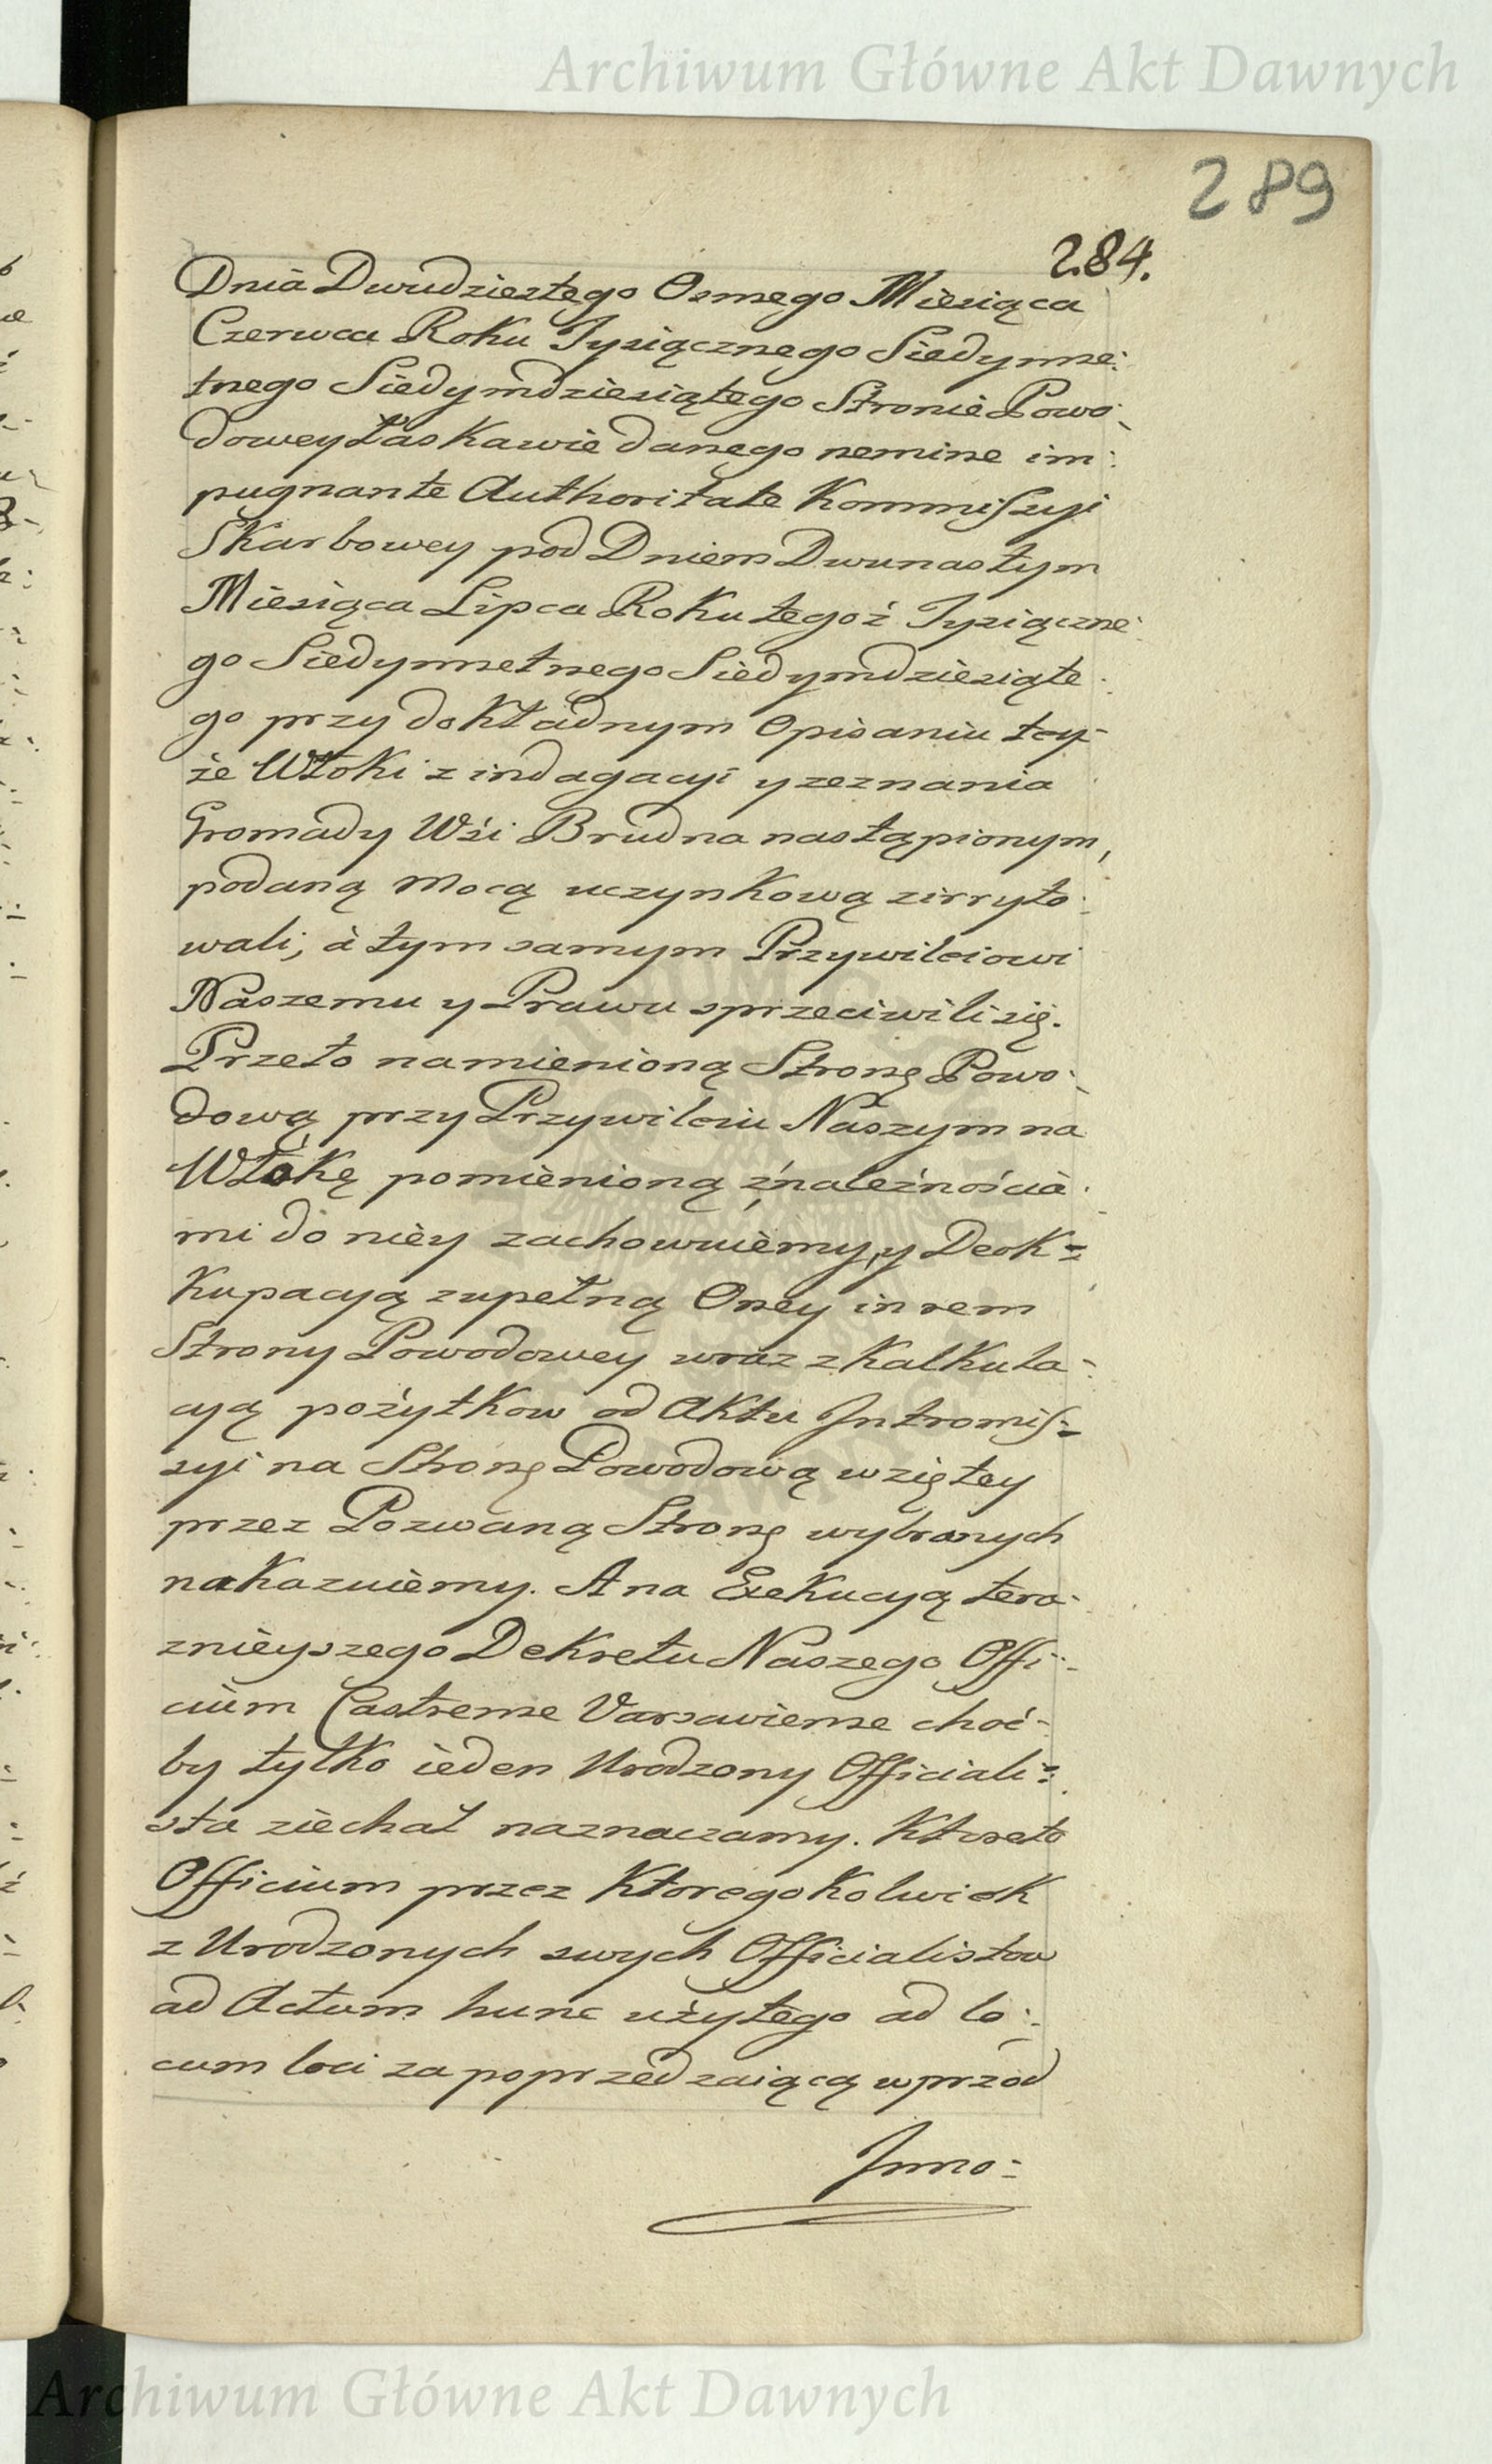 Archiwum Główne Akt Dawnych
289
284.
Dnia Dwudziestego Osmego Miesiąca
Czerwca Roku Tysiącznego Siedymse:
tnego Siedymdziesiątego Stronie Powo:
dowey Łaskawie danego nemine im:
pugnante Authoritate Kommissyi
Skarbowey pod Dniem Dwunastym
Miesiąca Lipca Roku tegoż Tysiączne:
go Siedymsetnego Siedymdziesiąte:
go przy dokładnym Opisaniu tey-
że Włoki z indagacyi y zeznania
Gromady Wśi Brudna nastąpionym,
podaną Mocą uczynkową zirryto:
wali, à tym samym Przywileiowi
Naszemu y Prawu sprzeciwili się.
Przeto namienioną Stronę Powo:
dową przy Przywileiu Naszym na
Włokę pomienioną z należnościa:
mi do niey zachowuiemy, y Deok=
kupacyą zupełną Oney in rem
Strony Powodowey wraz z Kalkula:
cyą pożytkow od Aktu Intromis=
syi na Stronę Powodową wziętey
przez Pozwaną Stronę wybranych
nakazuiemy. A na Exekucyą tera:
znieyszego Dekretu Naszego Offi:
cium Castrense Varsaviense choć:
by tylko ieden Urodzony Officiali=
sta ziechał naznaczamy. Ktoreto
Officium przez Ktoregokolwiek
z Urodzonych swych Officialistow
ad Actum hunc użytego ad lo:
cum loci za poprzedzaiącą wprzod
Inno:
Archiwum Główne Akt Dawnych